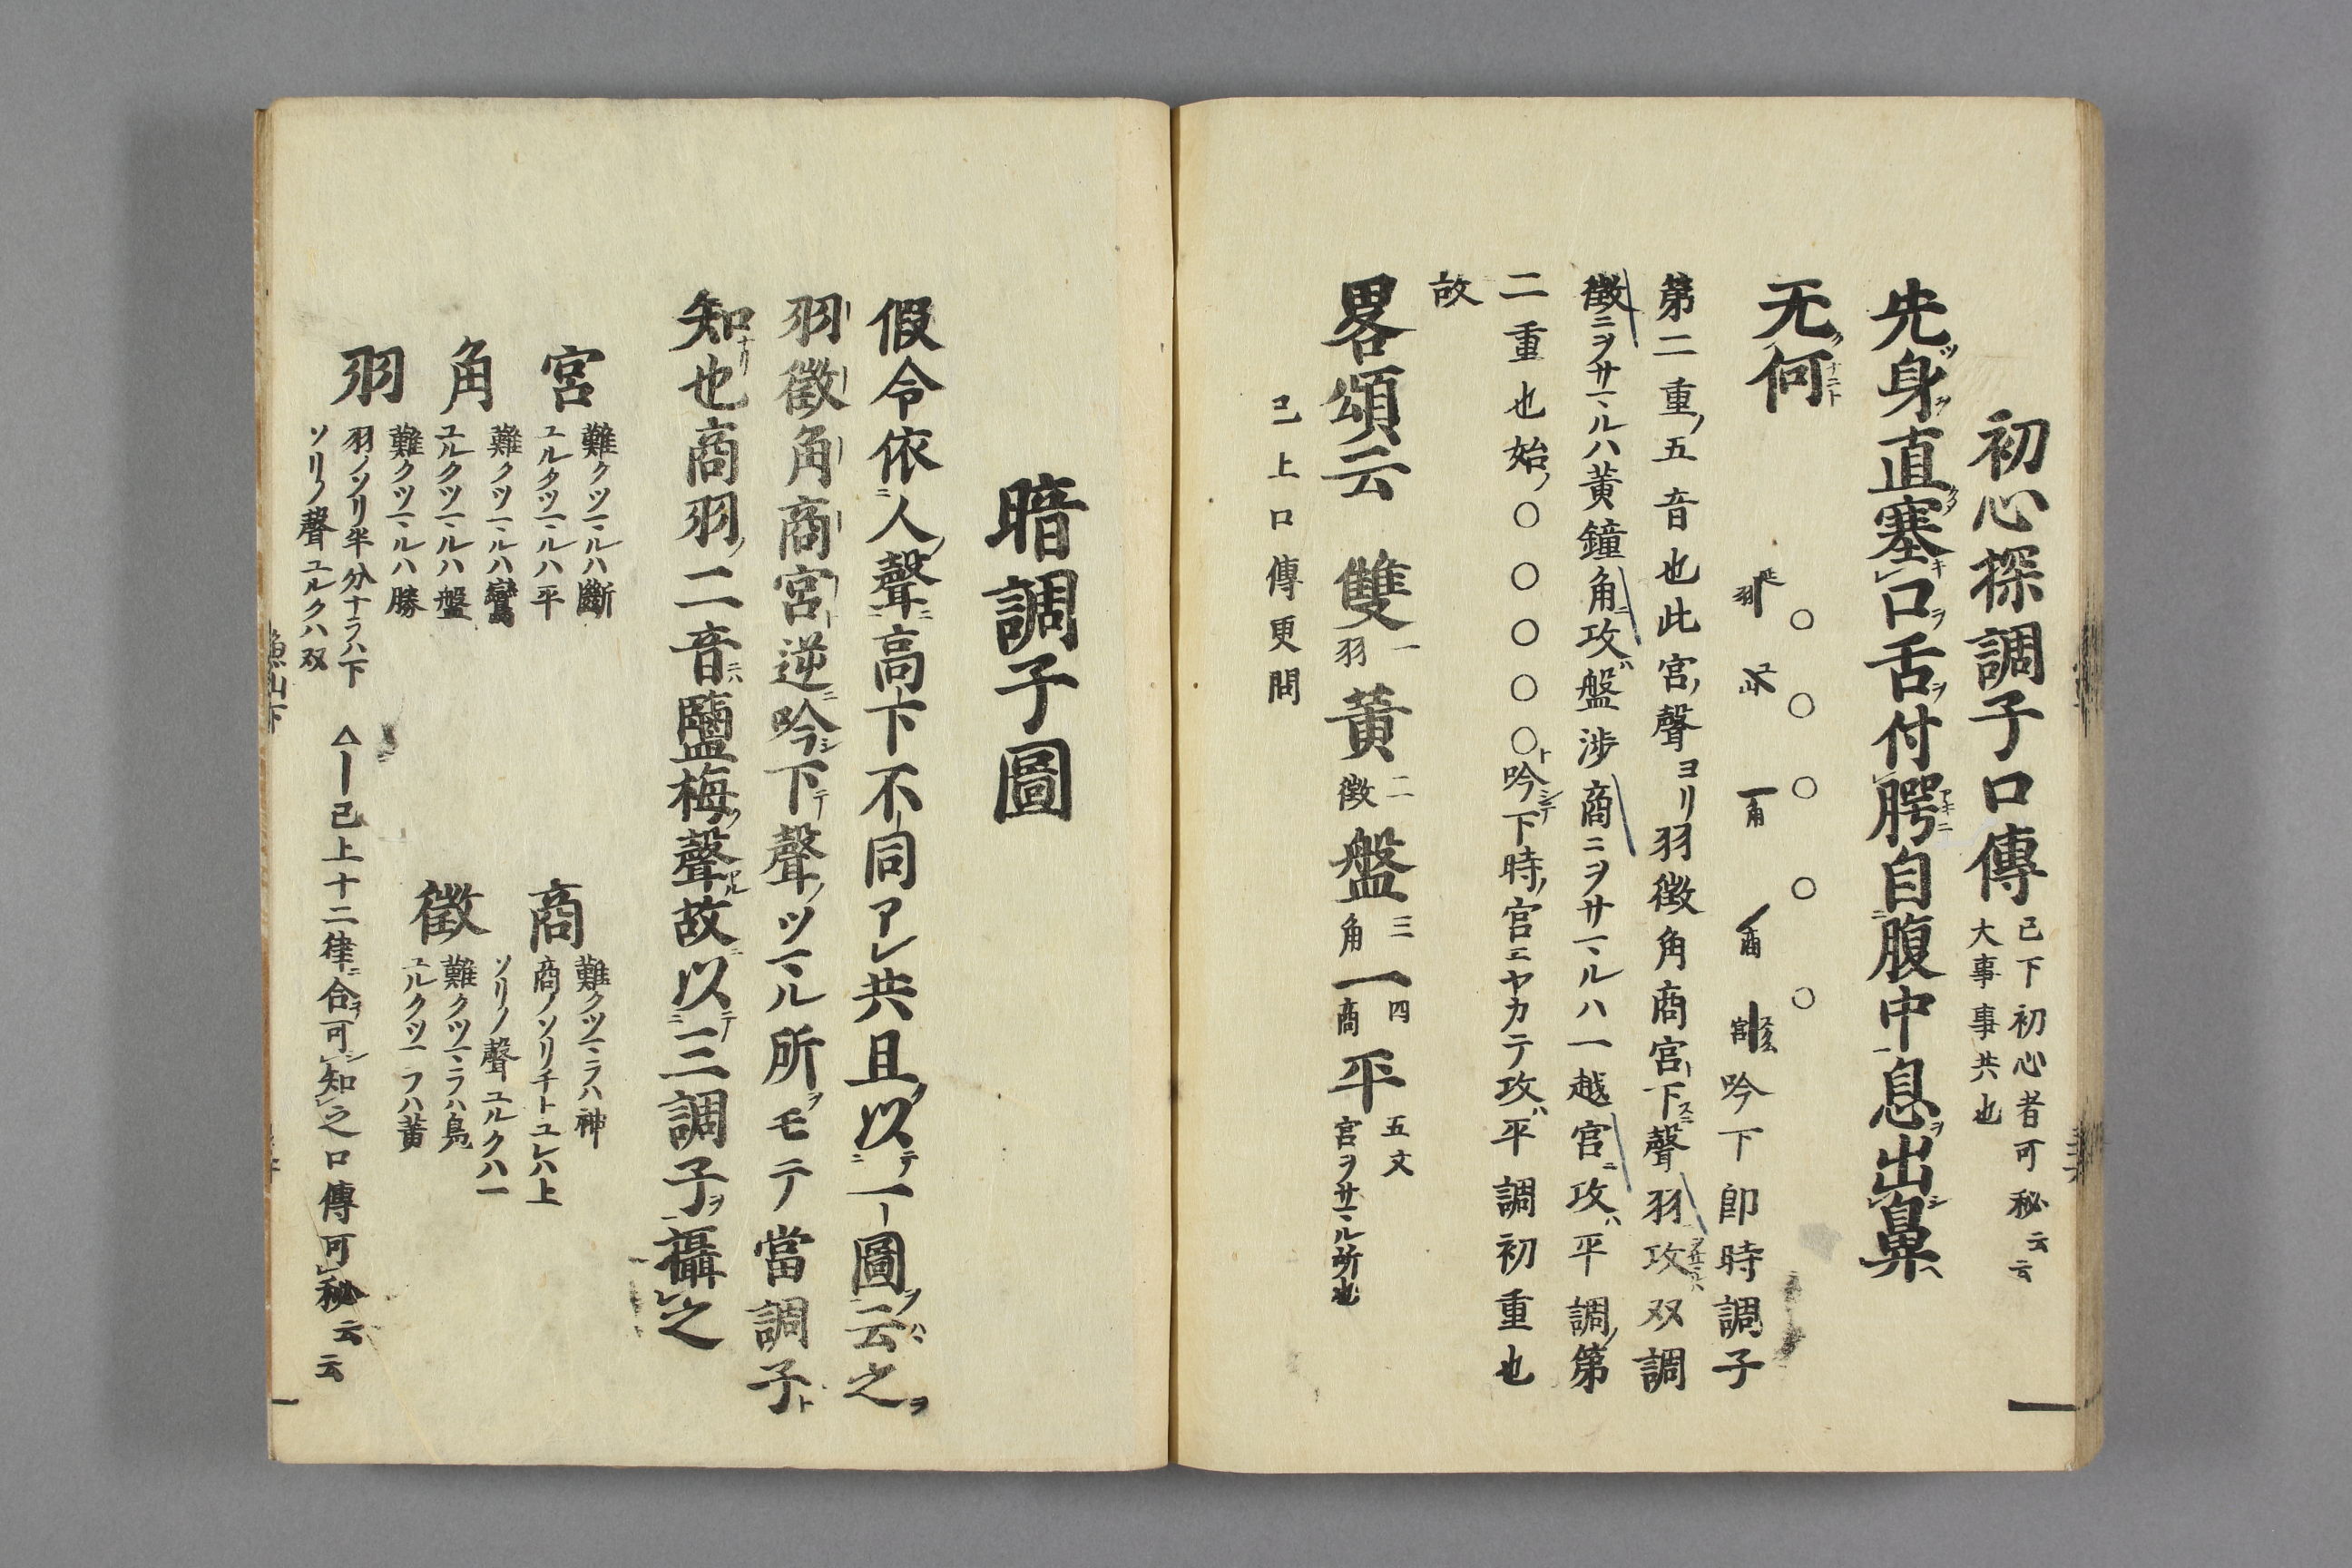 初心探調子口傳
已下初心者可秘云云
大事事共也
先ッ身ヲ直塞キ口ヲ舌ヲ付腭アキニ自腹中息ヲ出シ鼻ヘ
无何ナニト
○○○○○
羽 角 商 宮
吟下卽時調子
第二重ノ五音也此宮ノ聲ヨリ羽徴角商宮ト下スニ聲羽攻双調
徴ニヲサマルハ黄鐘角ニ攻ハ盤渉商ニヲサマルハ一越宮ニ攻ハ平調ノ第
二重也始ノ○○○○○ト吟シテ下時ノ宮ニヤカテ攻ハ平調初重也
故
畧頌云 雙一羽 黄二徴 盤三角 一四商 平五文宮ヲサマル所也
已上口傳更問
暗調子圖
假令依ニ人ノ聲ニ高下不同アレ共且ク以テ一圖ヲ云ハヽ之ヲ
羽徴角商宮逆ニ吟シ下テ聲ノツマル所ヲモテ當調子ト
知ナリ也商羽ノ二音ニハ鹽梅ノ聲アル故ニ以テ三調子ヲ攝之
宮
難クツマルハ斷
ユルクツマルハ平
角
難クツマルハ鸞
ユルクツマルハ盤
羽
難クツマルハ勝
羽ノソリ半分ナラハ下
ソリノ聲ユルクハ双
商
難クツマラハ神
商ノソリチトユレハ上
ソリノ聲ユルクハ一
徴
難クツマラハ鳬
ユルクツマラハ黄
△ー已上十二律ニ合ヲ可シ知之口傳可秘云云
魚山下
一